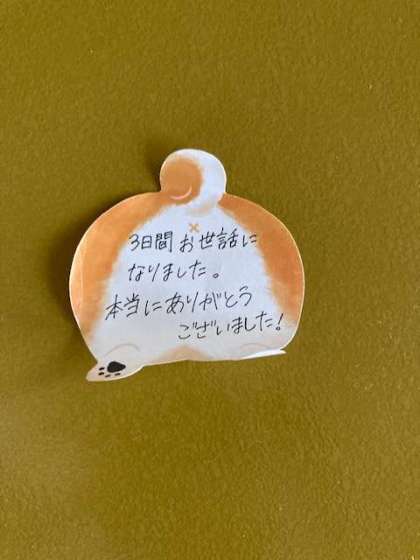 3日間お世話に
なりました。
本当にありがとう
ございました!